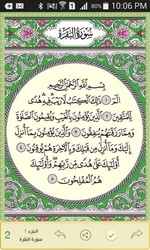 80% 10:06 PM
سُورَةُ الْبَقَرَةِ
بِسْمِ اللَّهِ الرَّحْمَٰنِ الرَّحِيمِ
الٓمٓ ١ ذَٰلِكَ الْكِتَابُ لَا رَيْبَ ۛ فِيهِ ۛ هُدًى
لِّلْمُتَّقِينَ ٢ الَّذِينَ يُؤْمِنُونَ بِالْغَيْبِ وَيُقِيمُونَ الصَّلَاةَ
وَمِمَّا رَزَقْنَاهُمْ يُنفِقُونَ ٣ وَالَّذِينَ يُؤْمِنُونَ بِمَا أُنزِلَ
إِلَيْكَ وَمَا أُنزِلَ مِن قَبْلِكَ وَبِالْآخِرَةِ هُمْ يُوقِنُونَ ٤
أُولَٰئِكَ عَلَىٰ هُدًى مِّن رَّبِّهِمْ ۖ وَأُولَٰئِكَ
هُمُ الْمُفْلِحُونَ ٥
2
الجزء ١
سورة البقرة